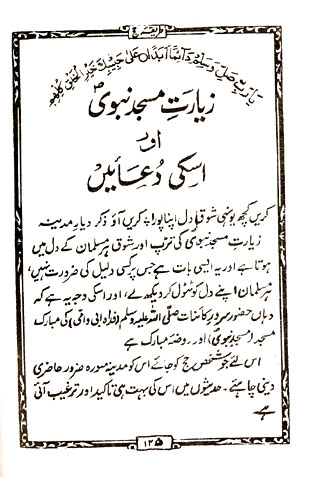 یَا رَبِّ صَلِّ وَسَلِّمْ دَائِمًا اَبَدًا عَلٰی حَبِیْبِكَ خَیْرِ الْخَلْقِ كُلِّهِمِ
زیارتِ مسجد نبویؐ
اور
اسکی دُعائیں
کریں کچھ یونہی شوقِ دل اپنا پورا ٭ کریں آؤ ذکر دیارِ مدینہ
زیارتِ مسجد نبویؐ کی تڑپ اور شوق ہر مسلمان کے دل میں
ہوتا ہے اور یہ ایسی بات ہے جس پر کسی دلیل کی ضرورت نہیں،
ہر مسلمان اپنے دل کو ٹٹول کر دیکھ لے، اور اسکی وجہ یہ ہے کہ
وہاں حضور سرورِ کائنات صلّی اللہ علیہ وسلم (فداہ ابی و امی) کی مبارک
مسجد (مسجد نبویؐ) اور روضۂ مبارک ہے
اس لئے جو شخص حج کو جائے اس کو مدینہ منورہ ضرور حاضری
دینی چاہئے۔ حدیثوں میں اس کی بہت ہی تاکید اور ترغیب آئی
ہے۔
۱۲۵